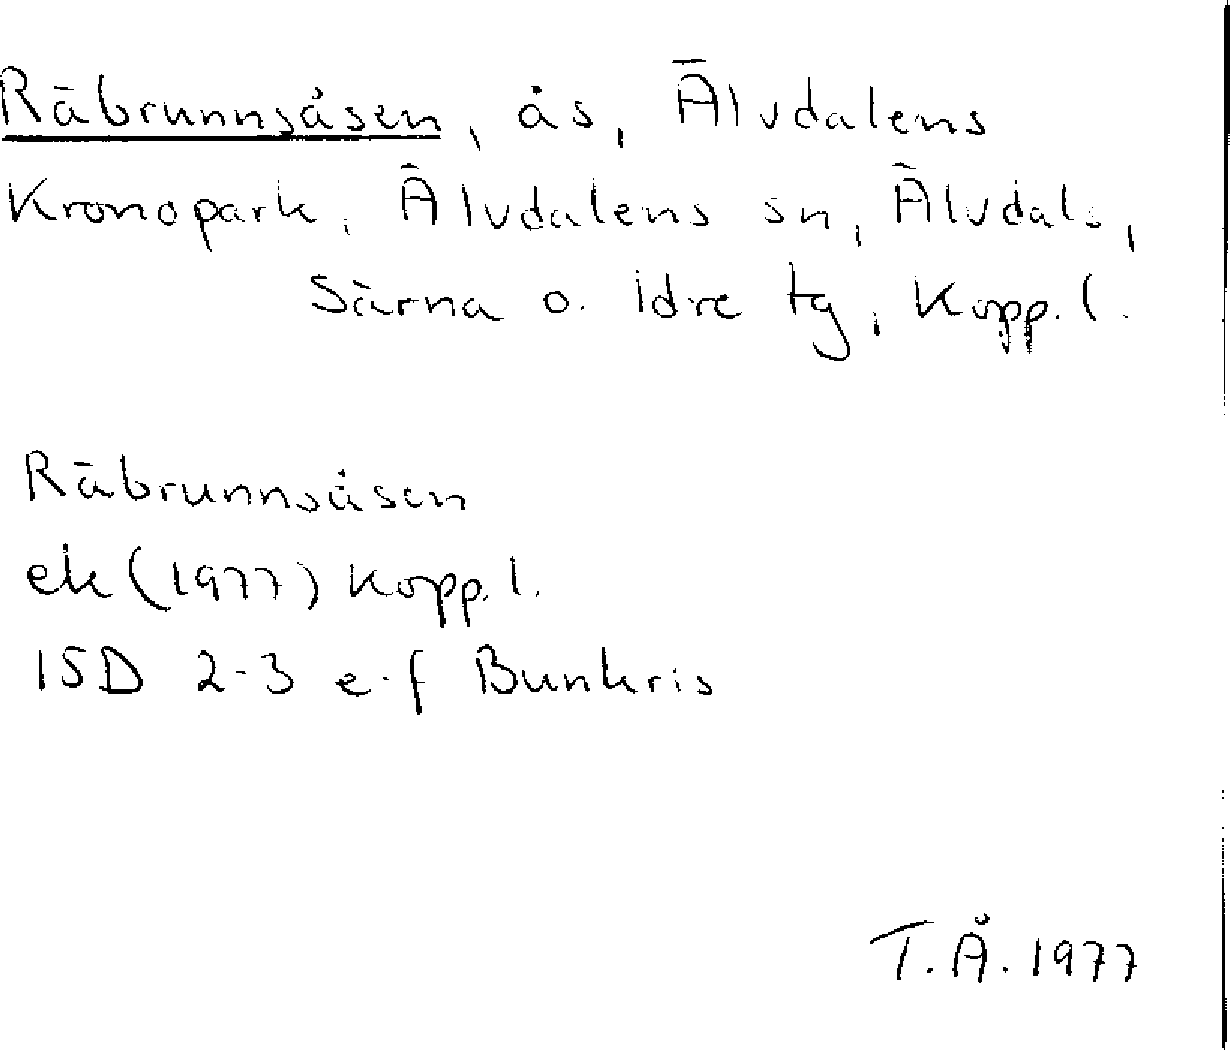 Räbrunnsåsen, ås, Älvdalens
Kronopark, Älvdalens sn, Älvdals,
Särna o. Idre tg, Kopp. l.
Räbrunnsåsen
ek (1977) Kopp. l.
15D 2-3 e-f Bunkris
T.Å. 1977